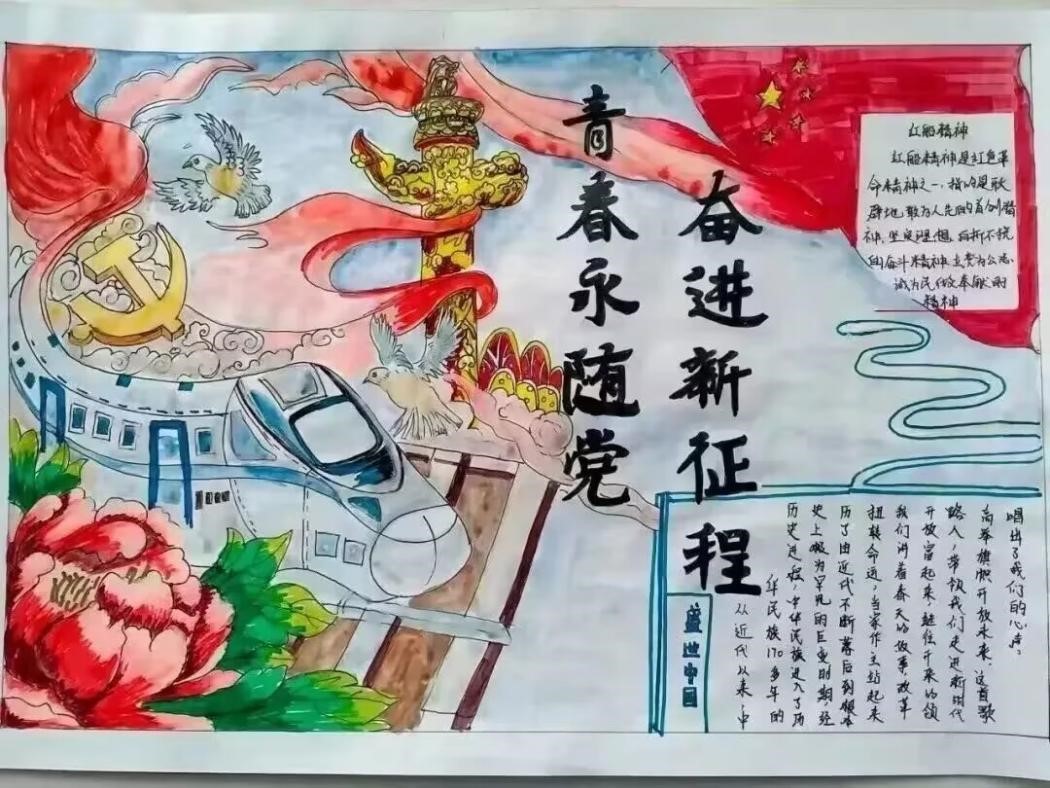 青春永随党
奋进新征程
红船精神
红船精神是红色革
命精神之一，指的是
辟地敢为人先的首创精
神，坚定理想，百折不挠
的奋斗精神，立党为公忠
诚为民的奉献的
精神
盛世中国
从近代以来，中
华民族170多年的
历史进程，中华民族进入了历
史上最为罕见的巨变时期，经
历了由近代不断落后到根本
扭转命运，当家作主站起来
我们讲着春天的故事，改革
开放富起来，继往开来的领
路人，带领我们走进新时代
高举旗帜开放未来，这首歌
唱出了我们的心声。